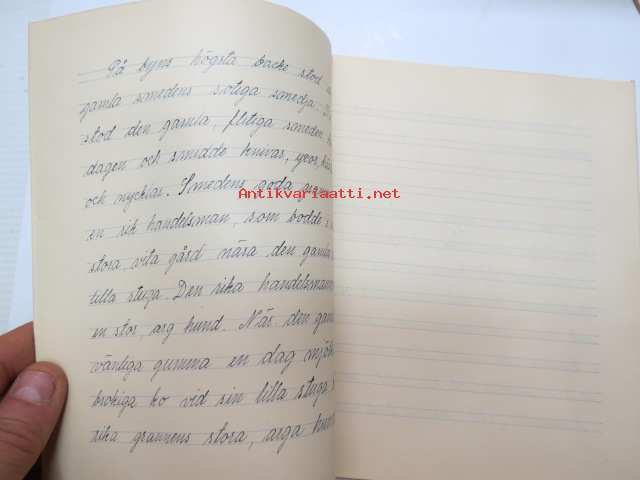 På byns högsta backe stod
gamla smedens sotiga smedja.
stod den gamla, flitiga smeden
dagen och smidde knivar, yxor,
och nycklar. Smedens goda
Antikvariaatti.net
en rik handelsman, som bodde
stora, vita gård nära den gamla
lilla stuga. Den rika handelsmannen
en stor, arg hund. När den gamla
vänliga gumma en dag
brokiga ko vid sin lilla stuga
rika grannens stora, arga